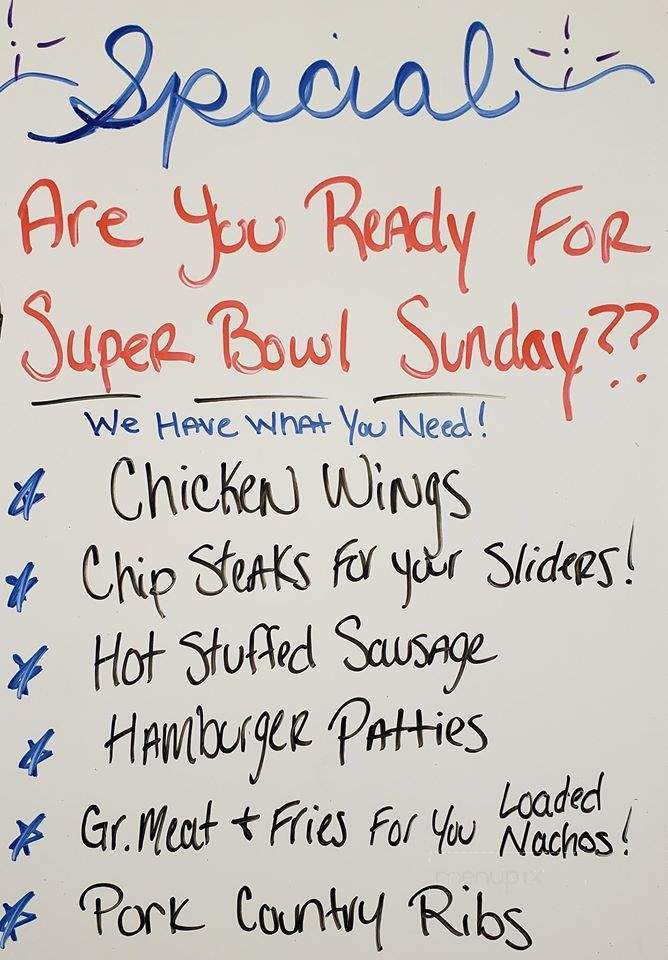 Special
Are You Ready For
Super Bowl Sunday??
We Have What You Need!
Chicken Wings
Chip Steaks For your Sliders!
Hot Stuffed Sausage
Hamburger Patties
Gr. Meat + Fries For You Loaded Nachos!
Pork Country Ribs
menupix